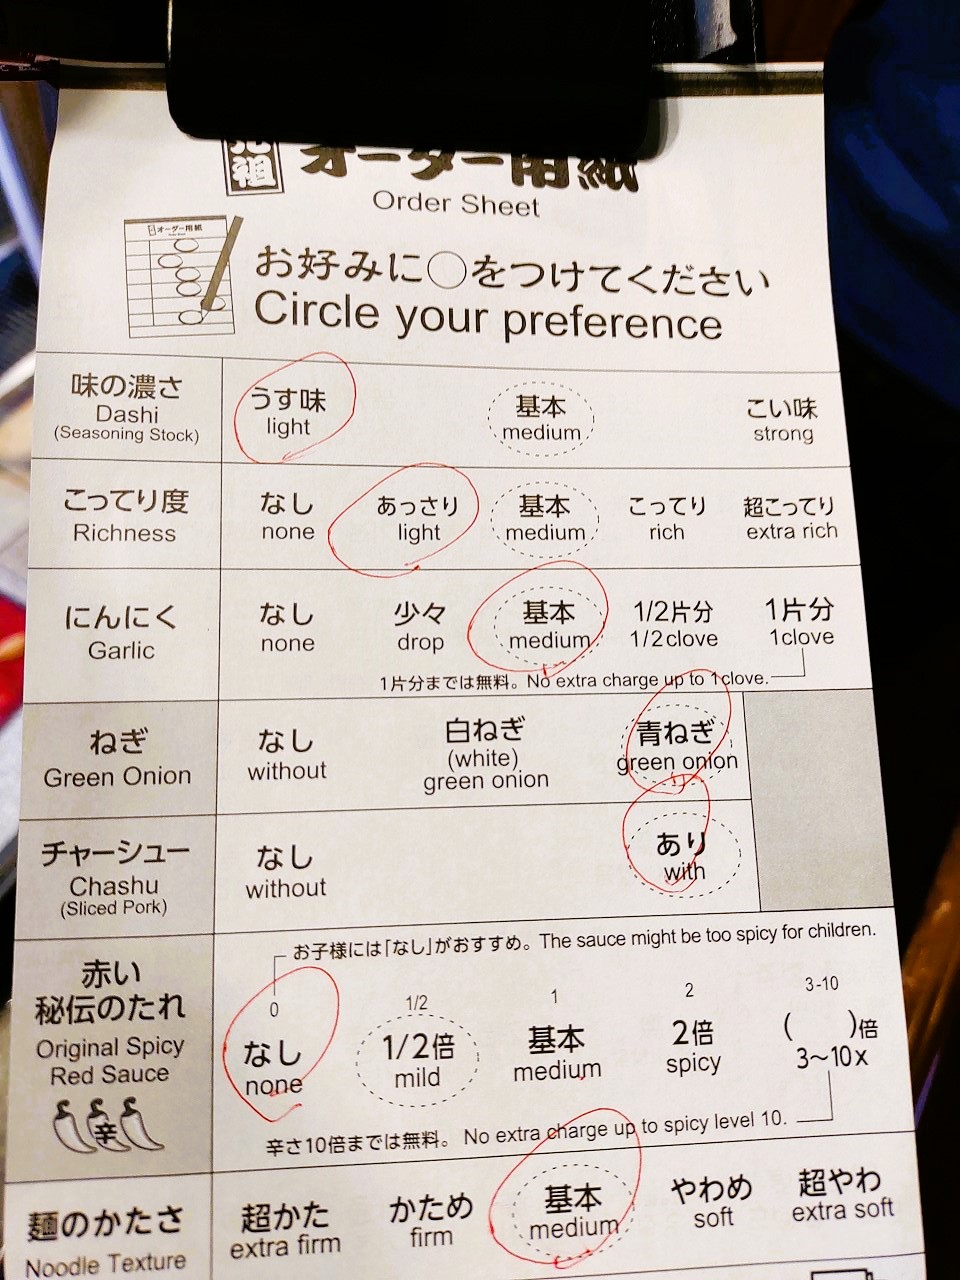 元祖 オーダー用紙
Order Sheet
オーダー用紙
お好みに○をつけてください
Circle your preference
味の濃さ
Dashi
(Seasoning Stock)
うす味
light
基本
medium
こい味
strong
こってり度
Richness
なし
none
あっさり
light
基本
medium
こってり
rich
超こってり
extra rich
にんにく
Garlic
なし
none
少々
drop
基本
medium
1/2片分
1/2 clove
1片分
1clove
1片分までは無料。No extra charge up to 1clove.
ねぎ
Green Onion
なし
without
白ねぎ
(white)
green onion
青ねぎ
green onion
チャーシュー
Chashu
(Sliced Pork)
なし
without
あり
with
赤い
秘伝のたれ
Original Spicy
Red Sauce
辛
お子様には「なし」がおすすめ。The sauce might be too spicy for children.
0
なし
none
1/2
1/2倍
mild
1
基本
medium
2
2倍
spicy
3-10
( )倍
3~10x
辛さ10倍までは無料。No extra charge up to spicy level 10.
麺のかたさ
Noodle Texture
超かた
extra firm
かため
firm
基本
medium
やわめ
soft
超やわ
extra soft